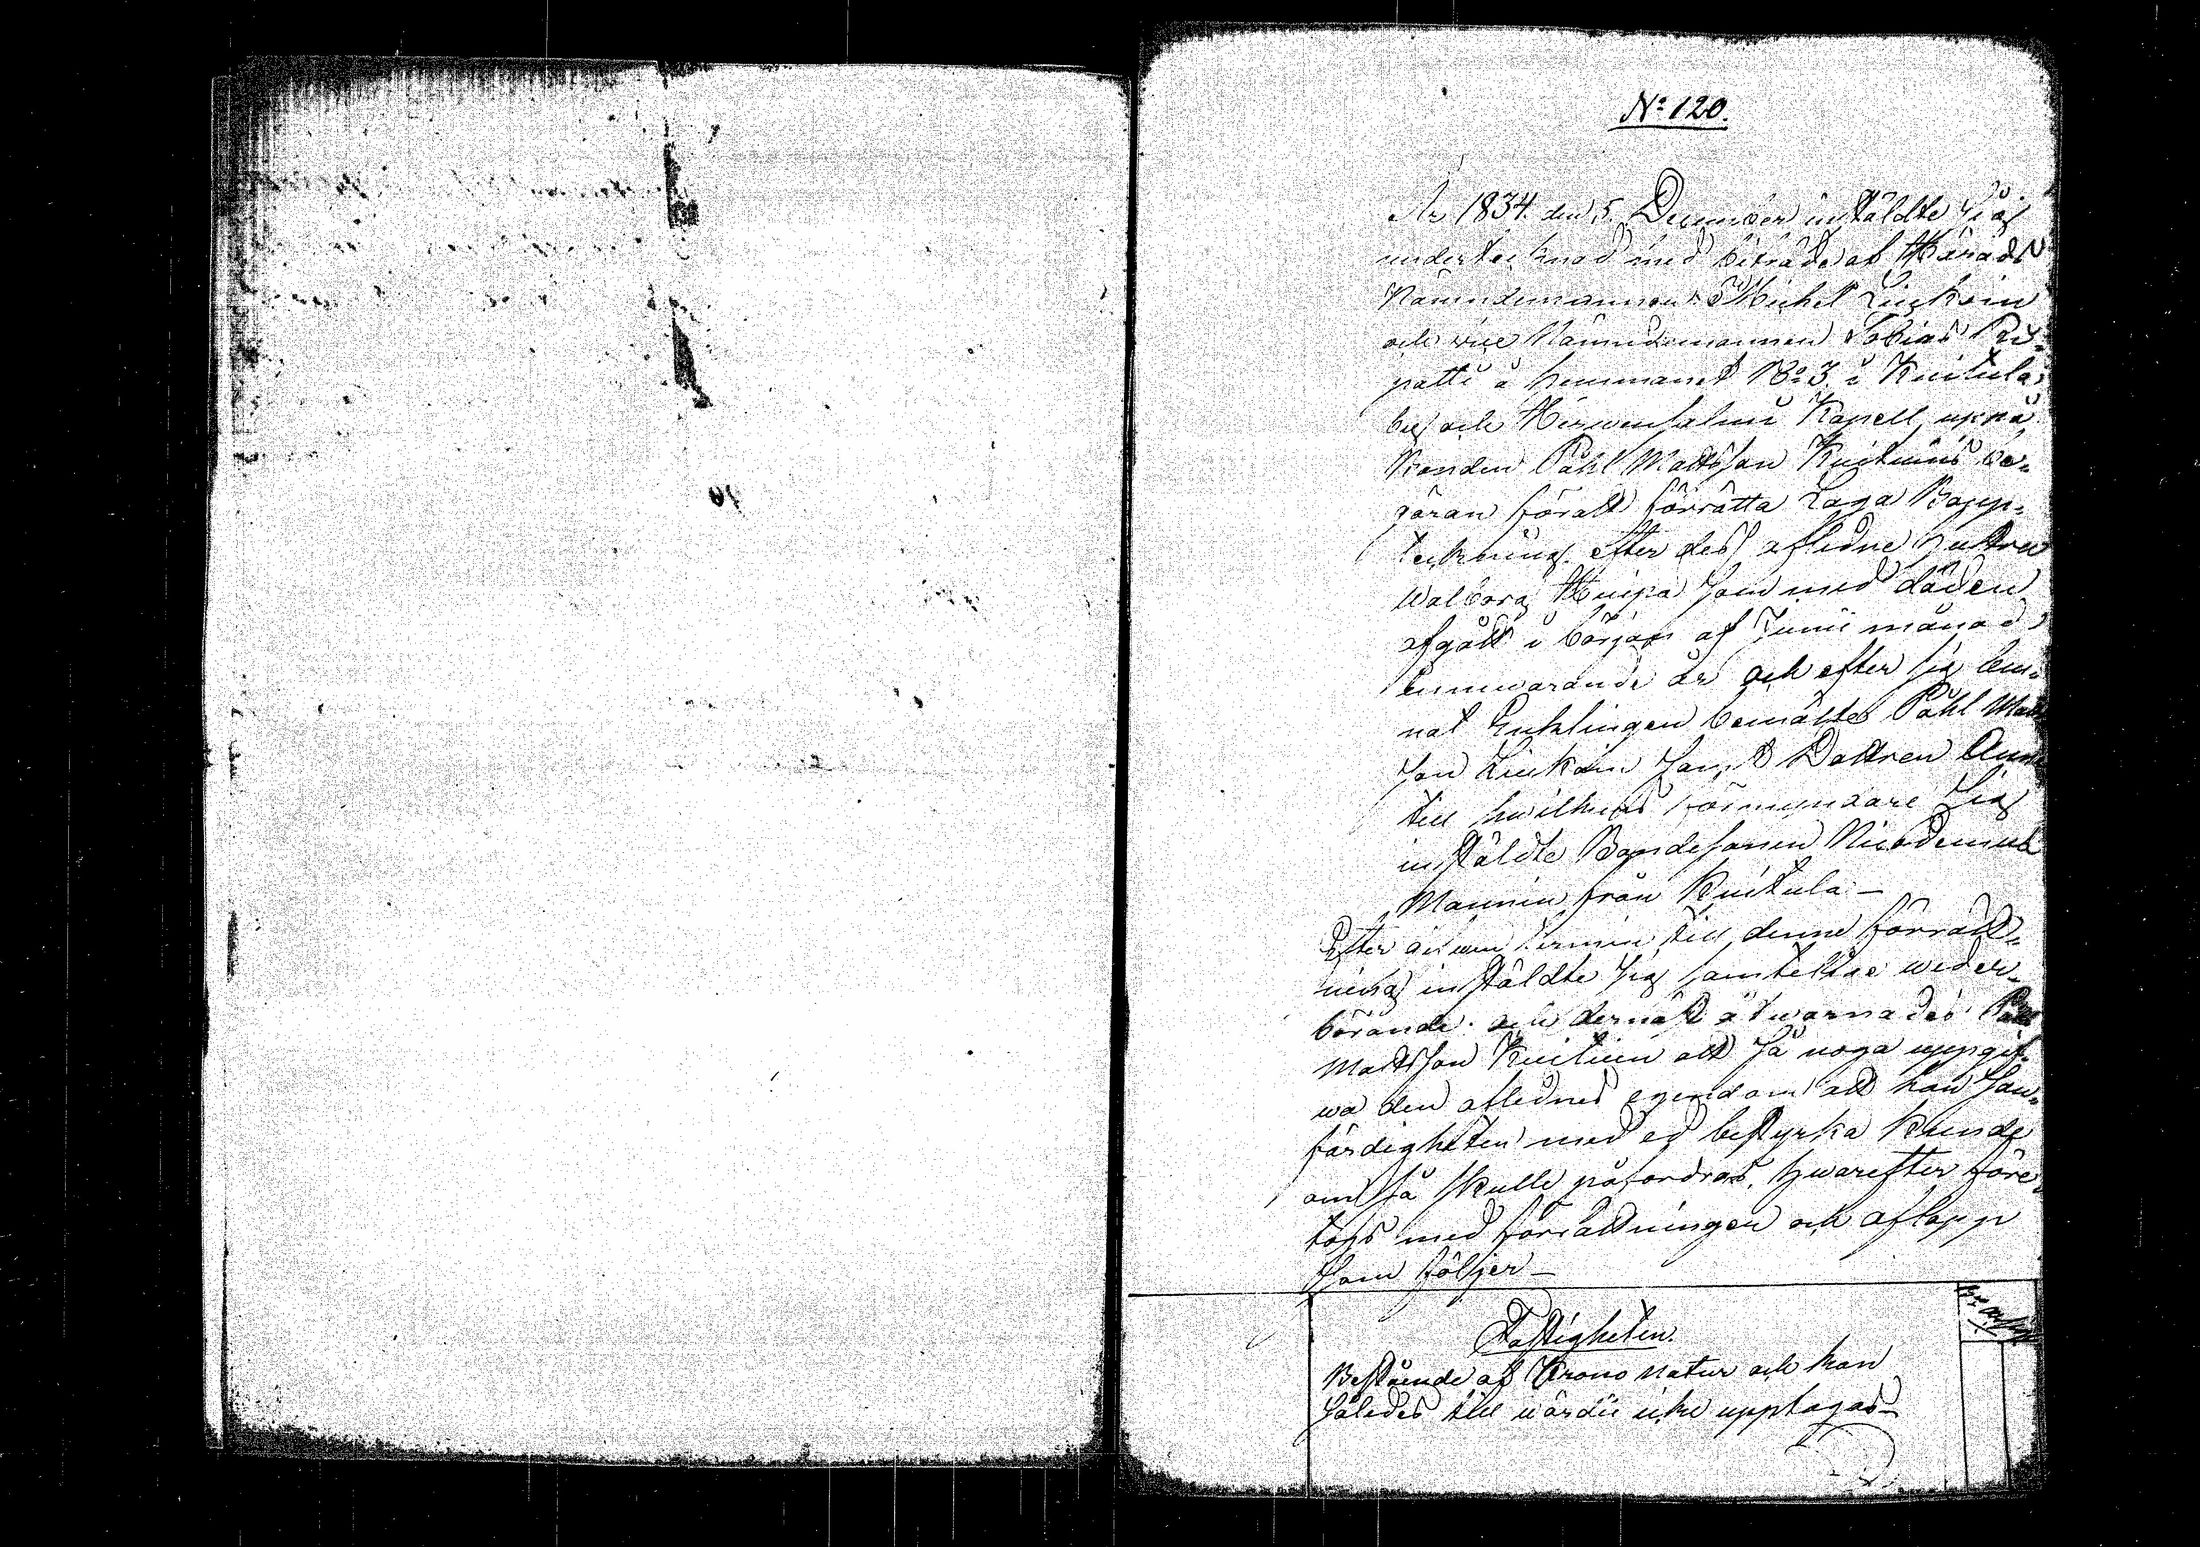 No 120.
År 1834. den 5. December instäldte sig
undertecknad med biträde af Härads
Nämndemannen Michel Liukoin
och vice Nämndemannen Tobias Ri-
patti å hemmanet No 3. i Kuitula
by och Hirvensalmi Kapell, uppå
Bonden Påhl Mattsson Kuitunis be-
gäran föratt förrätta Laga Bopp-
teckning efter dess aflidne hustru
Walborg Kuipa som med döden
afgått i början af Junii månad
innewarande år och efter sig lem-
nat Enklingen bemälte Påhl Matts
son samt Dottren Anna
till hwilkens förmyndare sig
instälдte Bondesonen Nicodemus
Manninen från Kuitula —
Efter gifwen termin till denne förrätt-
ning instäldte sig samtelige weder-
börande. och dernäst åtwarnades Påhl
Mattsson Kuituin att så noga uppgif-
wa den aflednes egendom att han San-
färdigheten med ed bestyrka kunde
om så skulle påfordras, hwarefter före
togs med förrättningen och aflopp
som följer —
Fastigheten.
Bestående af Krono natur och kan
således till wärde icke upptagas —